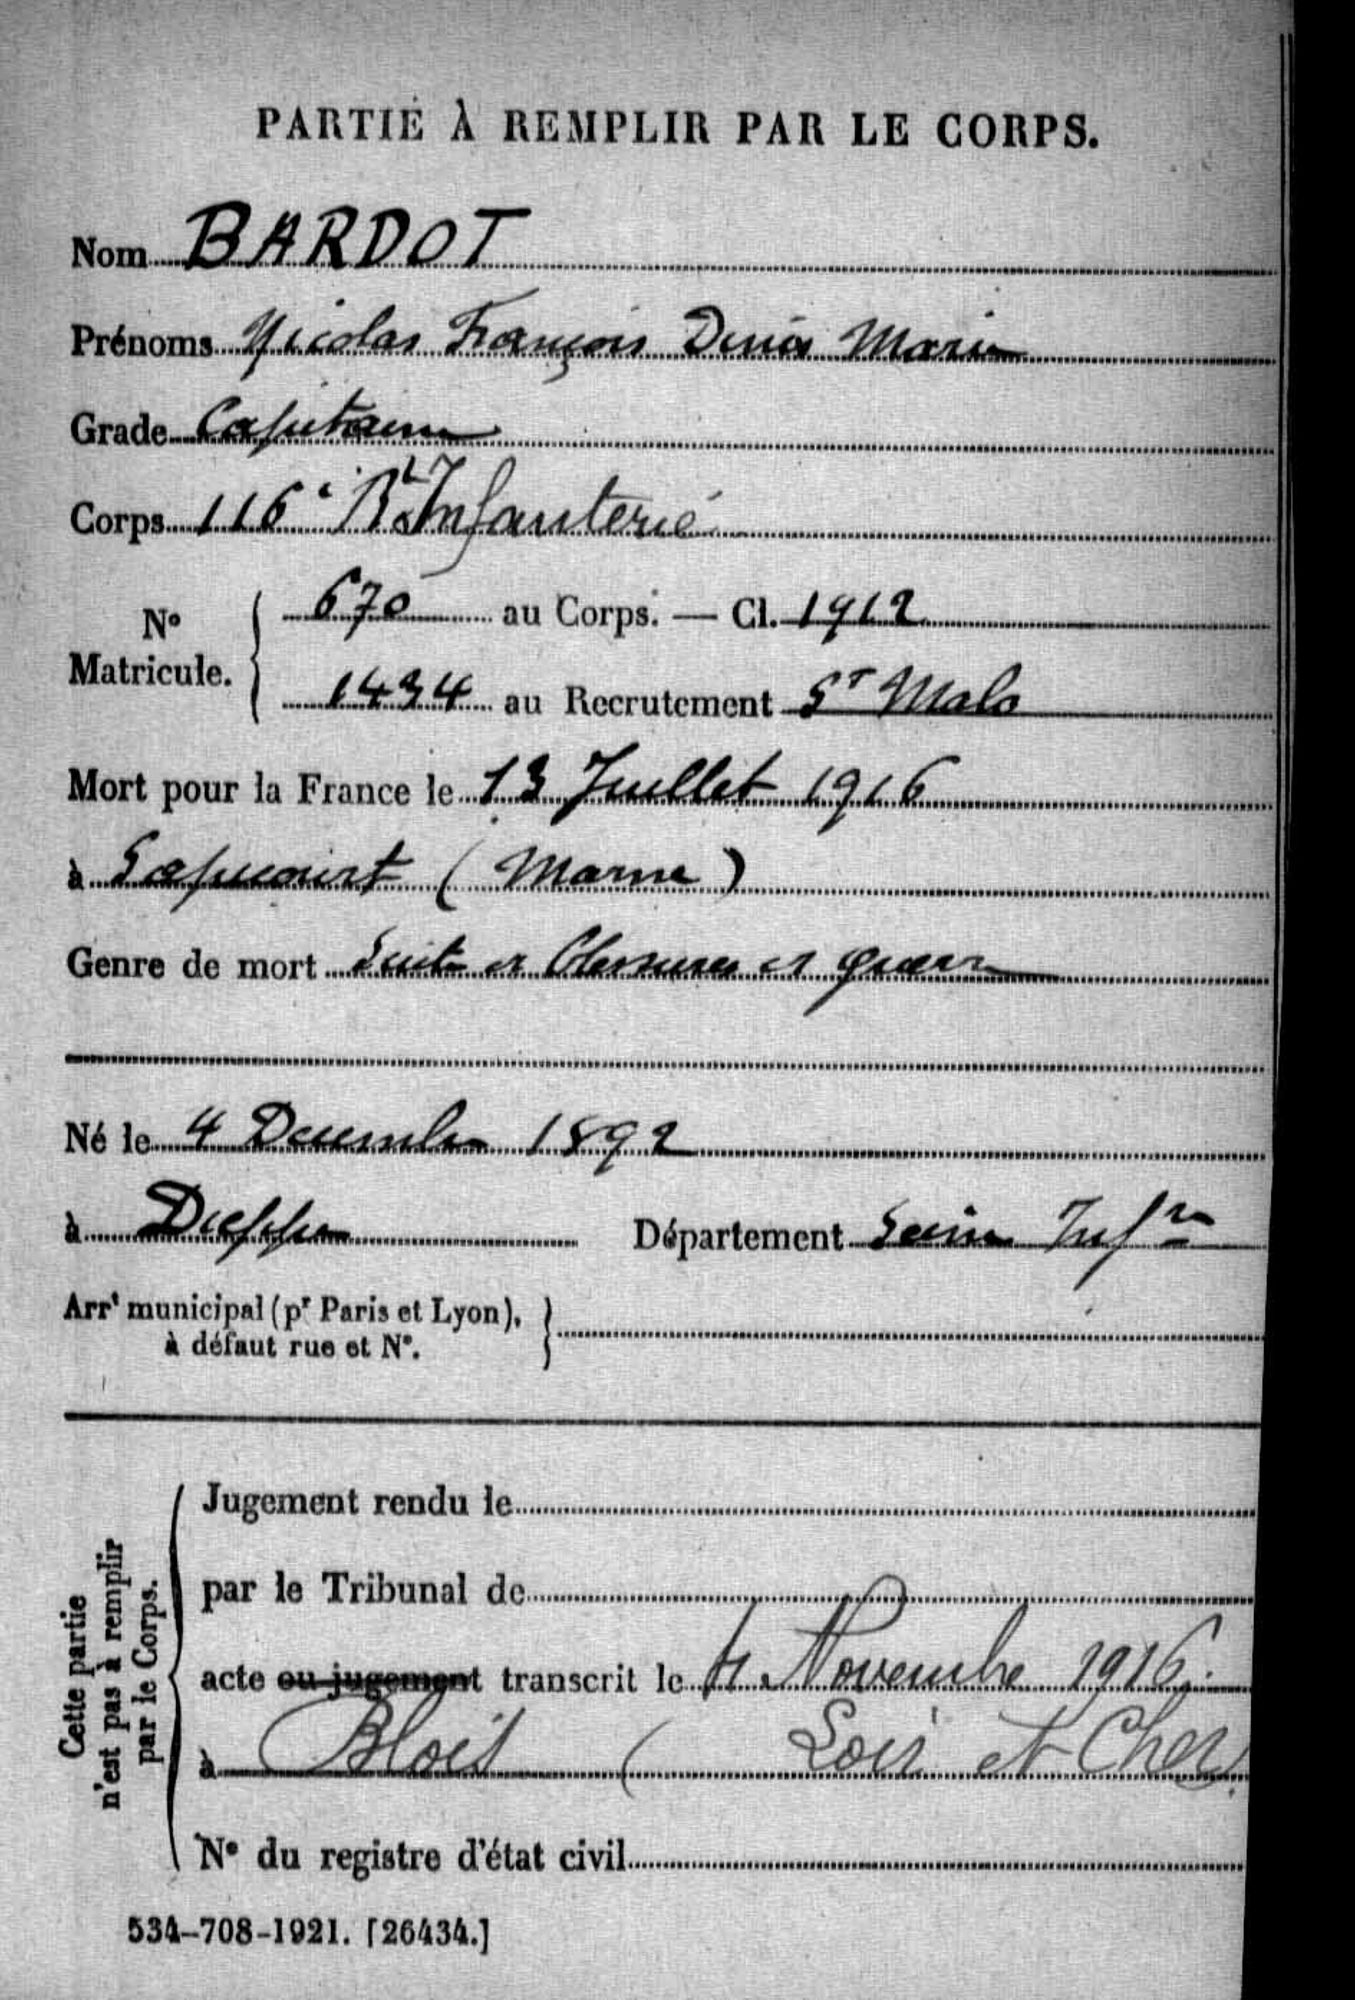 PARTIE À REMPLIR PAR LE CORPS.
Nom BARDOT
Prénoms Nicolas François Denis Marie
Grade Capitaine
Corps 116e Rt d'Infanterie
No Matricule. { 670 au Corps. — Cl. 1912
1434 au Recrutement St Malo
Mort pour la France le 13 Juillet 1916
à Sapicourt (Marne)
Genre de mort Suite de blessures de guerre
Né le 4 Decembre 1892
à Dieppe Département Seine Infre
Arrt municipal (pr Paris et Lyon), à défaut rue et No. }
Cette partie n'est pas à remplir par le Corps.
Jugement rendu le
par le Tribunal de
acte ou jugement transcrit le 4 Novembre 1916.
à Blois ( Loir et Cher
No du registre d'état civil
534-708-1921. [26434.]